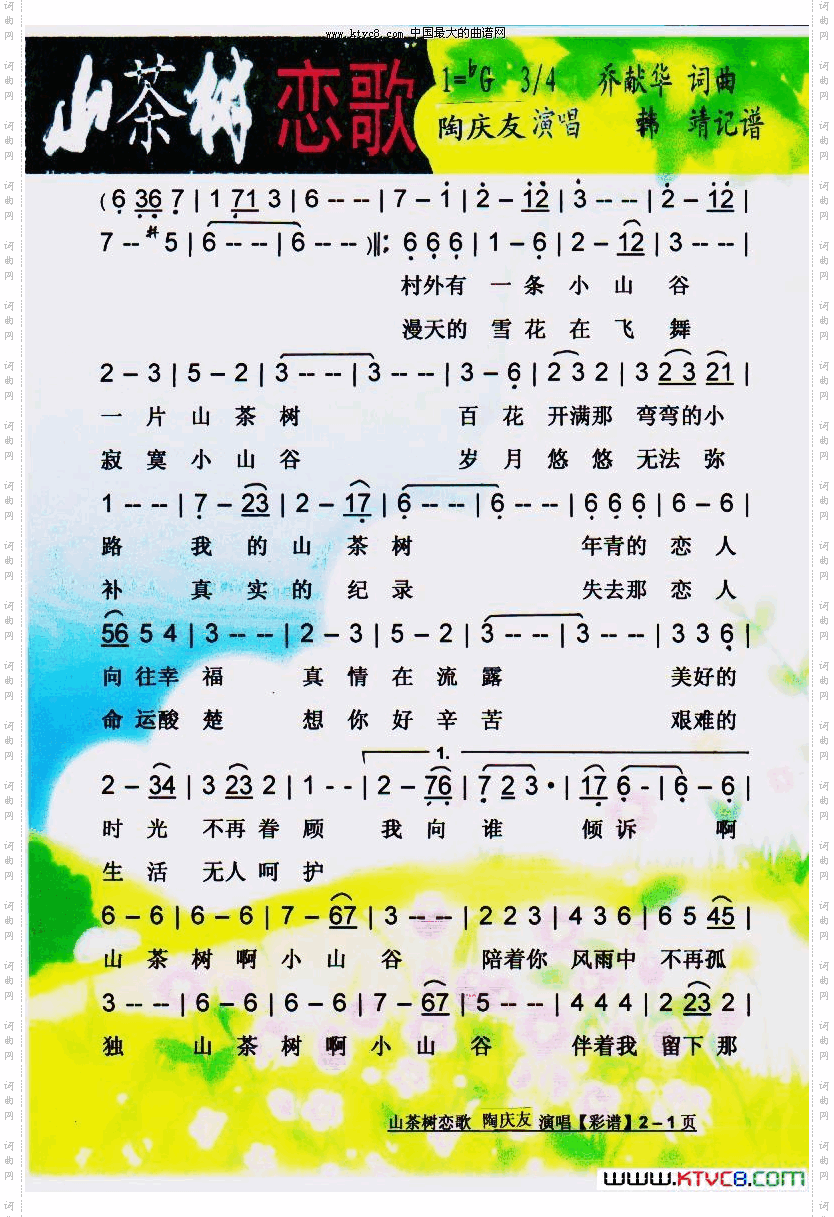 www.ktvc8.com 中国最大的曲谱网
山茶树 恋歌
1=♭G 3/4 乔献华 词曲
陶庆友 演唱 韩 靖记谱
( 6 36 7 | 1 71 3 | 6 - - | 7 - 1 | 2 - 12 | 3 - - | 2 - 12 |
7 - - #5 | 6 - - | 6 - - )‖: 6 6 6 | 1 - 6 | 2 - 12 | 3 - - |
村外有 一 条 小 山 谷
漫天的 雪 花 在 飞 舞
2 - 3 | 5 - 2 | 3 - - | 3 - - | 3 - 6 | 2 3 2 | 3 2 3 21 |
一 片 山 茶 树 百 花 开满那 弯弯的小
寂 寞 小 山 谷 岁 月 悠 悠 无法 弥
1 - - | 7 - 23 | 2 - 17 | 6 - - | 6 - - | 6 6 6 | 6 - 6 |
路 我 的 山 茶 树 年青的 恋 人
补 真 实 的 纪 录 失去那 恋 人
56 5 4 | 3 - - | 2 - 3 | 5 - 2 | 3 - - | 3 - - | 3 3 6 |
向 往幸 福 真 情 在 流 露 美好的
命 运酸 楚 想 你 好 辛 苦 艰难的
1.
2 - 34 | 3 23 2 | 1 - - | 2 - 76 | 7 2 3 · | 17 6 - | 6 - 6 |
时 光 不再 眷 顾 我 向 谁 倾 诉 啊
生 活 无人 呵 护
6 - 6 | 6 - 6 | 7 - 67 | 3 - - | 2 2 3 | 4 3 6 | 6 5 45 |
山 茶 树 啊 小 山 谷 陪着你 风雨中 不再孤
3 - - | 6 - 6 | 6 - 6 | 7 - 67 | 5 - - | 4 4 4 | 2 23 2 |
独 山 茶 树 啊 小 山 谷 伴着我 留下 那
山茶树恋歌 陶庆友 演唱【彩谱】2－1页
www.KTVC8.com
词曲网